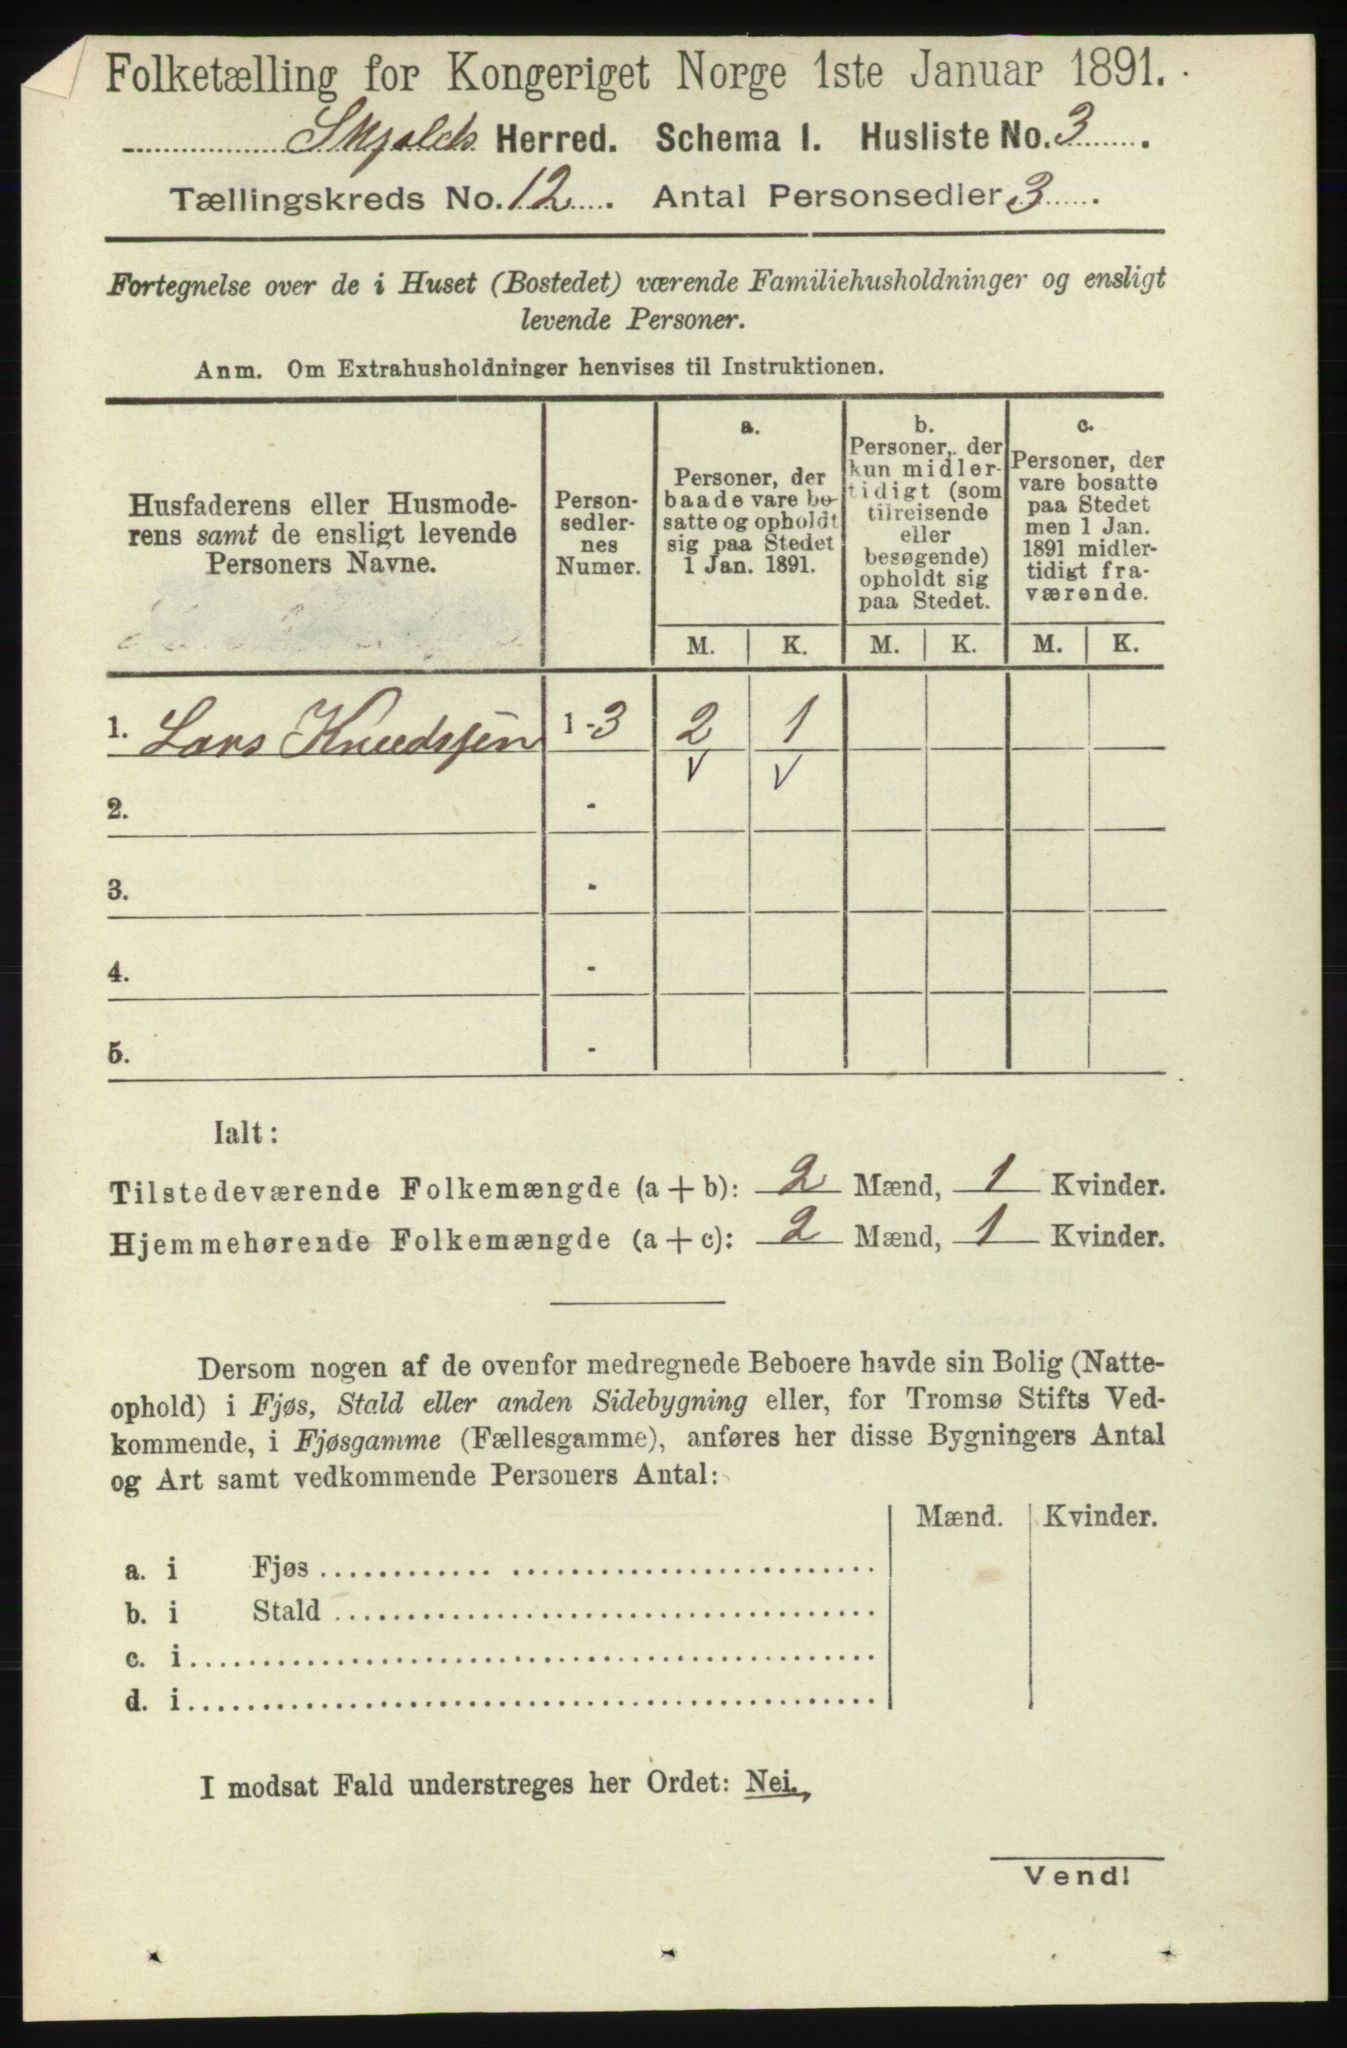 Folketælling for Kongeriget Norge 1ste Januar 1891.
Skjolds Herred. Schema I. Husliste No. 3.
Tællingskreds No. 12. Antal Personsedler 3.
Fortegnelse over de i Huset (Bostedet) værende Familiehusholdninger og ensligt
levende Personer.
Anm. Om Extrahusholdninger henvises til Instruktionen.
Husfaderens eller Husmode-
rens samt de ensligt levende
Personers Navne.
Person-
sedler-
nes
Numer.
a.
Personer, der
baade vare bo-
satte og opholdt
sig paa Stedet
1 Jan. 1891.
b.
Personer, der
kun midler-
tidigt (som
tilreisende
eller
besøgende)
opholdt sig
paa Stedet.
c.
Personer, der
vare bosatte
paa Stedet
men 1 Jan.
1891 midler-
tidigt fra-
værende.
M. K. M. K. M. K.
1. Lars Knudsen 1-3 2 1
2. -
3. -
4. -
5. -
Ialt:
Tilstedeværende Folkemængde (a + b): 2 Mænd, 1 Kvinder.
Hjemmehørende Folkemængde (a + c): 2 Mænd, 1 Kvinder.
Dersom nogen af de ovenfor medregnede Beboere havde sin Bolig (Natte-
ophold) i Fjøs, Stald eller anden Sidebygning eller, for Tromsø Stifts Ved-
kommende, i Fjøsgamme (Fællesgamme), anføres her disse Bygningers Antal
og Art samt vedkommende Personers Antal:
Mænd. Kvinder.
a. i Fjøs
b. i Stald
c. i
d. i
I modsat Fald understreges her Ordet: Nei.
Vend!